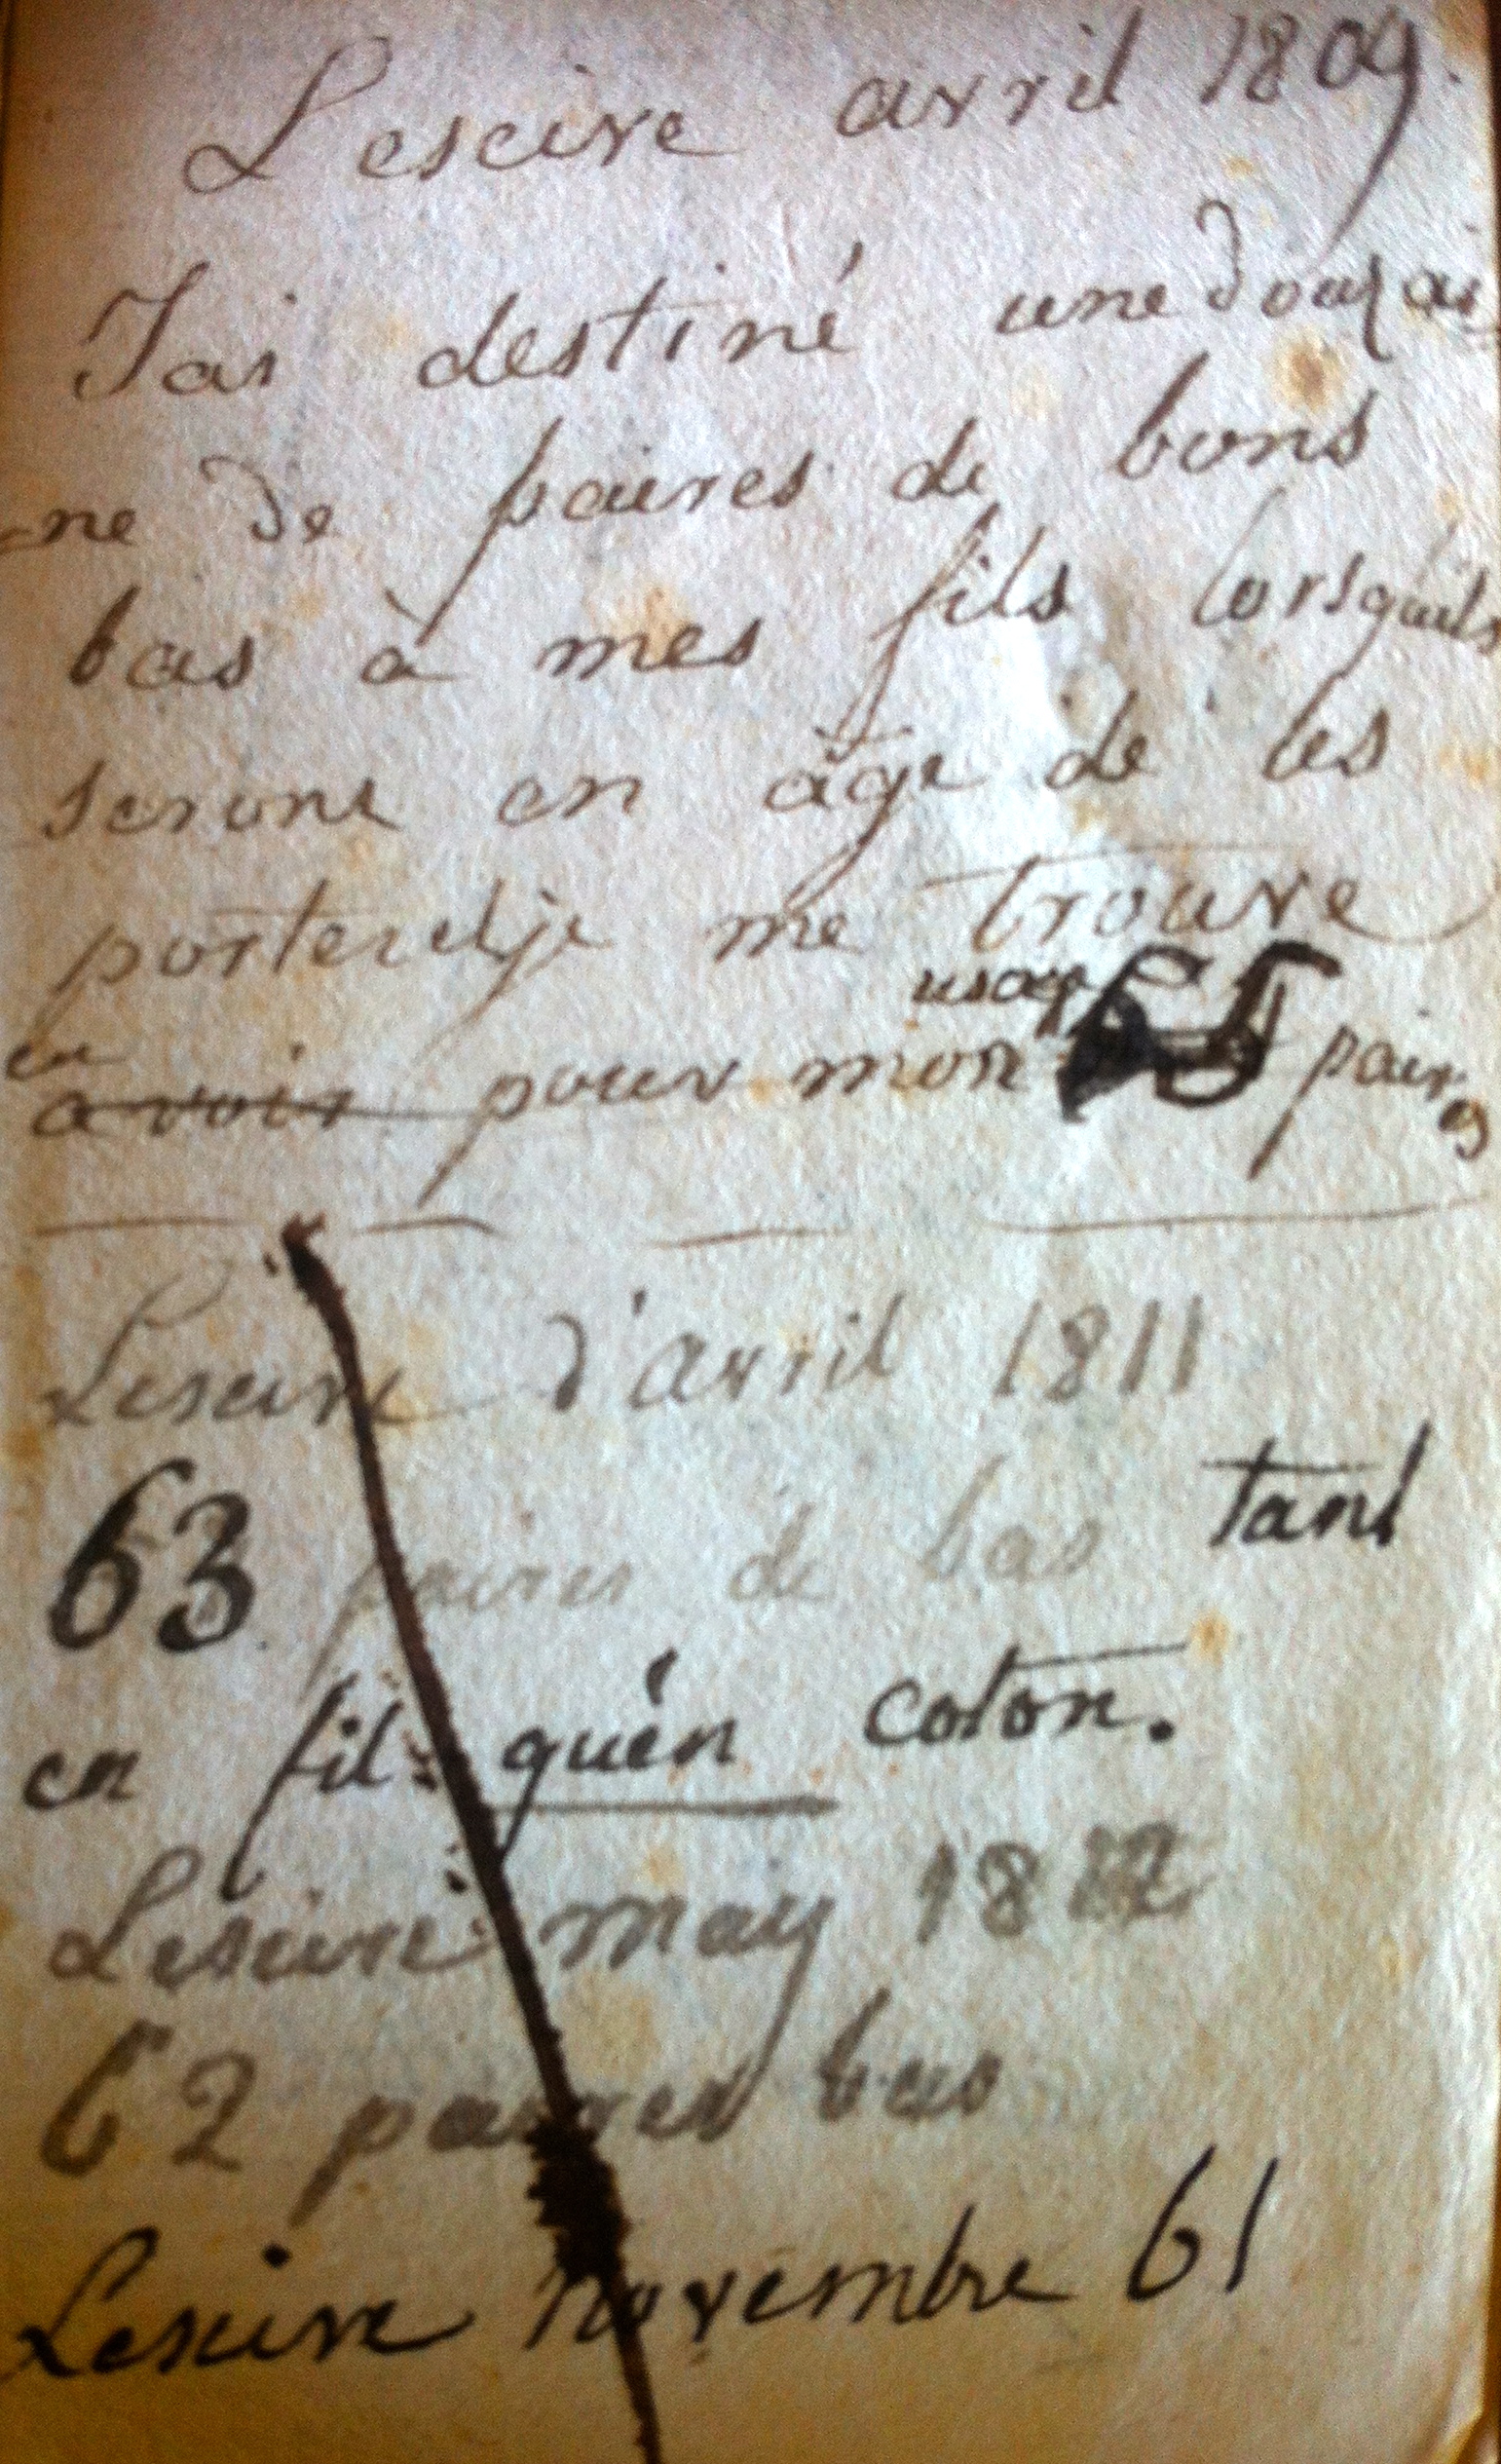 Lescive avril 1809.
J'ai destiné une douzai
-ne de paires de bons
bas à mes fils lorsqu'ils
seront en âge de les
porter et je me trouve
usage
en
avoir pour mon 65 paires
Lescive d'avril 1811
63 paires de bas tant
en fil qu'en coton.
Lescive may 1812
62 paires bas
Lescive novembre 61